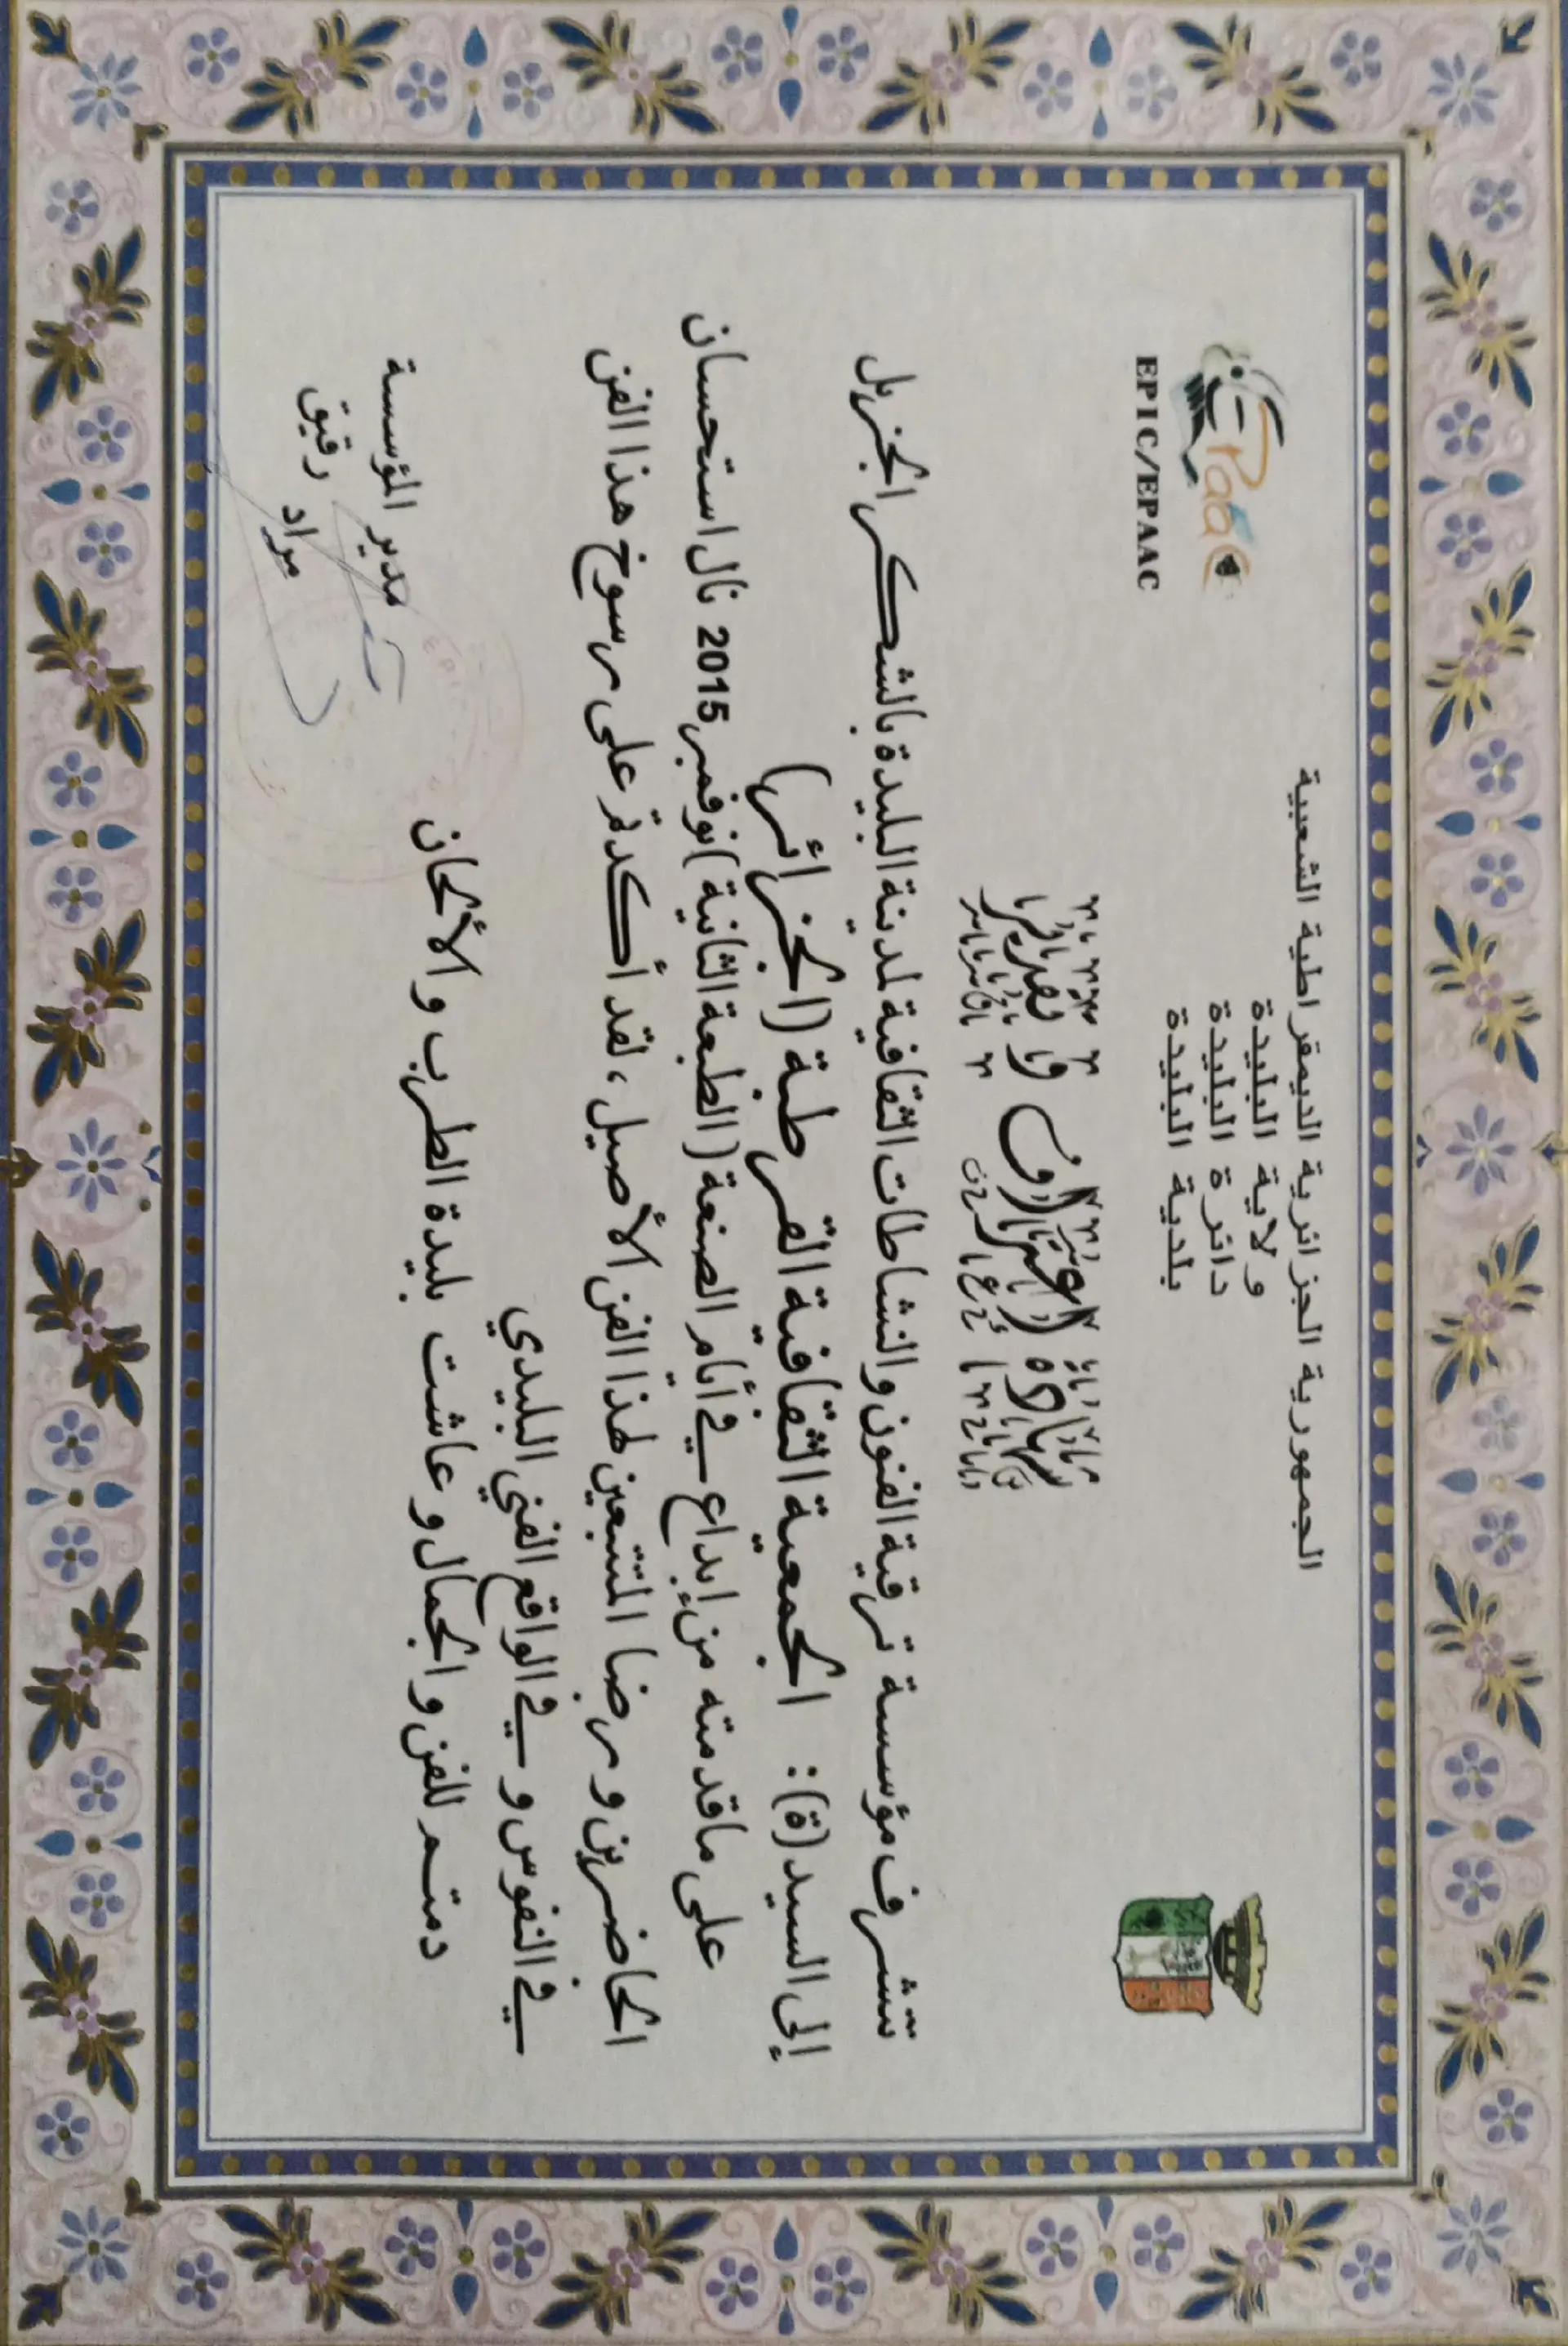 الجمهورية الجزائرية الديمقراطية الشعبية
ولاية البليدة
دائرة البليدة
بلدية البليدة
EPaac
EPIC/EPAAC
شهادة اعتراف و تقدير
تتشرف مؤسسة ترقية الفنون والنشاطات الثقافية لمدينة البليدة بالشكر الجزيل
إلى السيد(ة): الجمعية الثقافية القرطبة (الجزائر)
على ما قدمته من إبداع في أيام الصنعة (الطبعة الثانية) نوفمبر 2015 نال استحسان
الحاضرين و رضا المتتبعين لهذا الفن الأصيل، لقد أكدتم على رسوخ هذا الفن
في النفوس و في الواقع الفني البليدي
دمتم للفن و الجمال و عاشت بليدة الطرب و الألحان
مدير المؤسسة
رقيق مراد